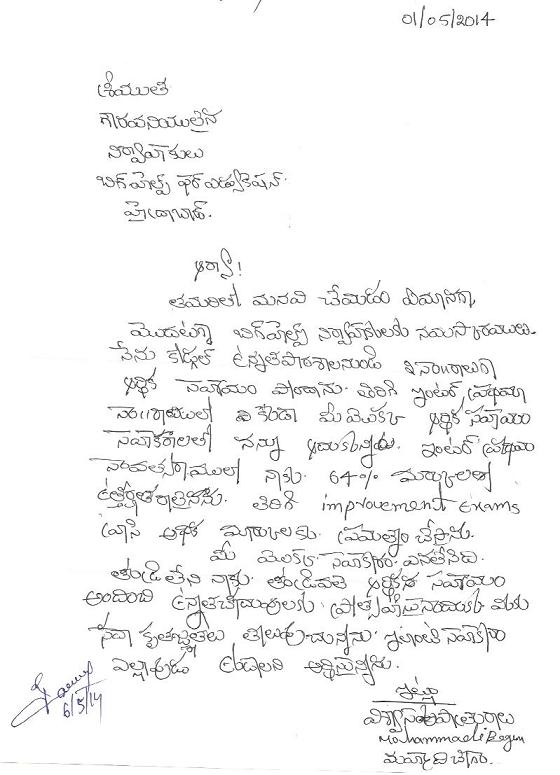 01/05/2014
శ్రీయుత
గౌరవనీయులైన
నిర్వాహకులు
బిగ్ హెల్ప్ ఫర్ ఎడ్యుకేషన్.
హైదరాబాద్.
ఆర్యా!
తమరితో మనవి చేయడం ఏమనగా
మొదటగా బిగ్ హెల్ప్ నిర్వాహకులకు నమస్కారములు.
నేను ఉన్నతపాఠశాలనుండి
ఆర్థిక సహాయం పొందాను. తిరిగి ఇంటర్ ప్రథమ
మీయొక్క ఆర్థిక సహాయ
సహకారాలతో నన్ను ఆదుకున్నారు. ఇంటర్ ప్రథమ
సంవత్సరములో నాకు 64% మార్కులతో
ఉత్తీర్ణతరాలైనాను. తిరిగి improvement Exams
వ్రాసి అధిక మార్కులకు ప్రయత్నం చేస్తాను.
మీ యొక్క సహకారం ఎనలేనిది.
తండ్రిలేని నాకు తండ్రివలె ఆర్థిక సహాయం
అందించి ఉన్నతచదువులకు మీకు
నేను కృతజ్ఞతలు తెలుపుచున్నాను. ఇలాంటి సహకారం
ఎల్లప్పుడు ఉండాలని ఆశిస్తున్నాను.
ఇట్లు
విశ్వాసపాత్రురాలు
Mohammadi Begum
మహ్మది బేగం.
6/5/14